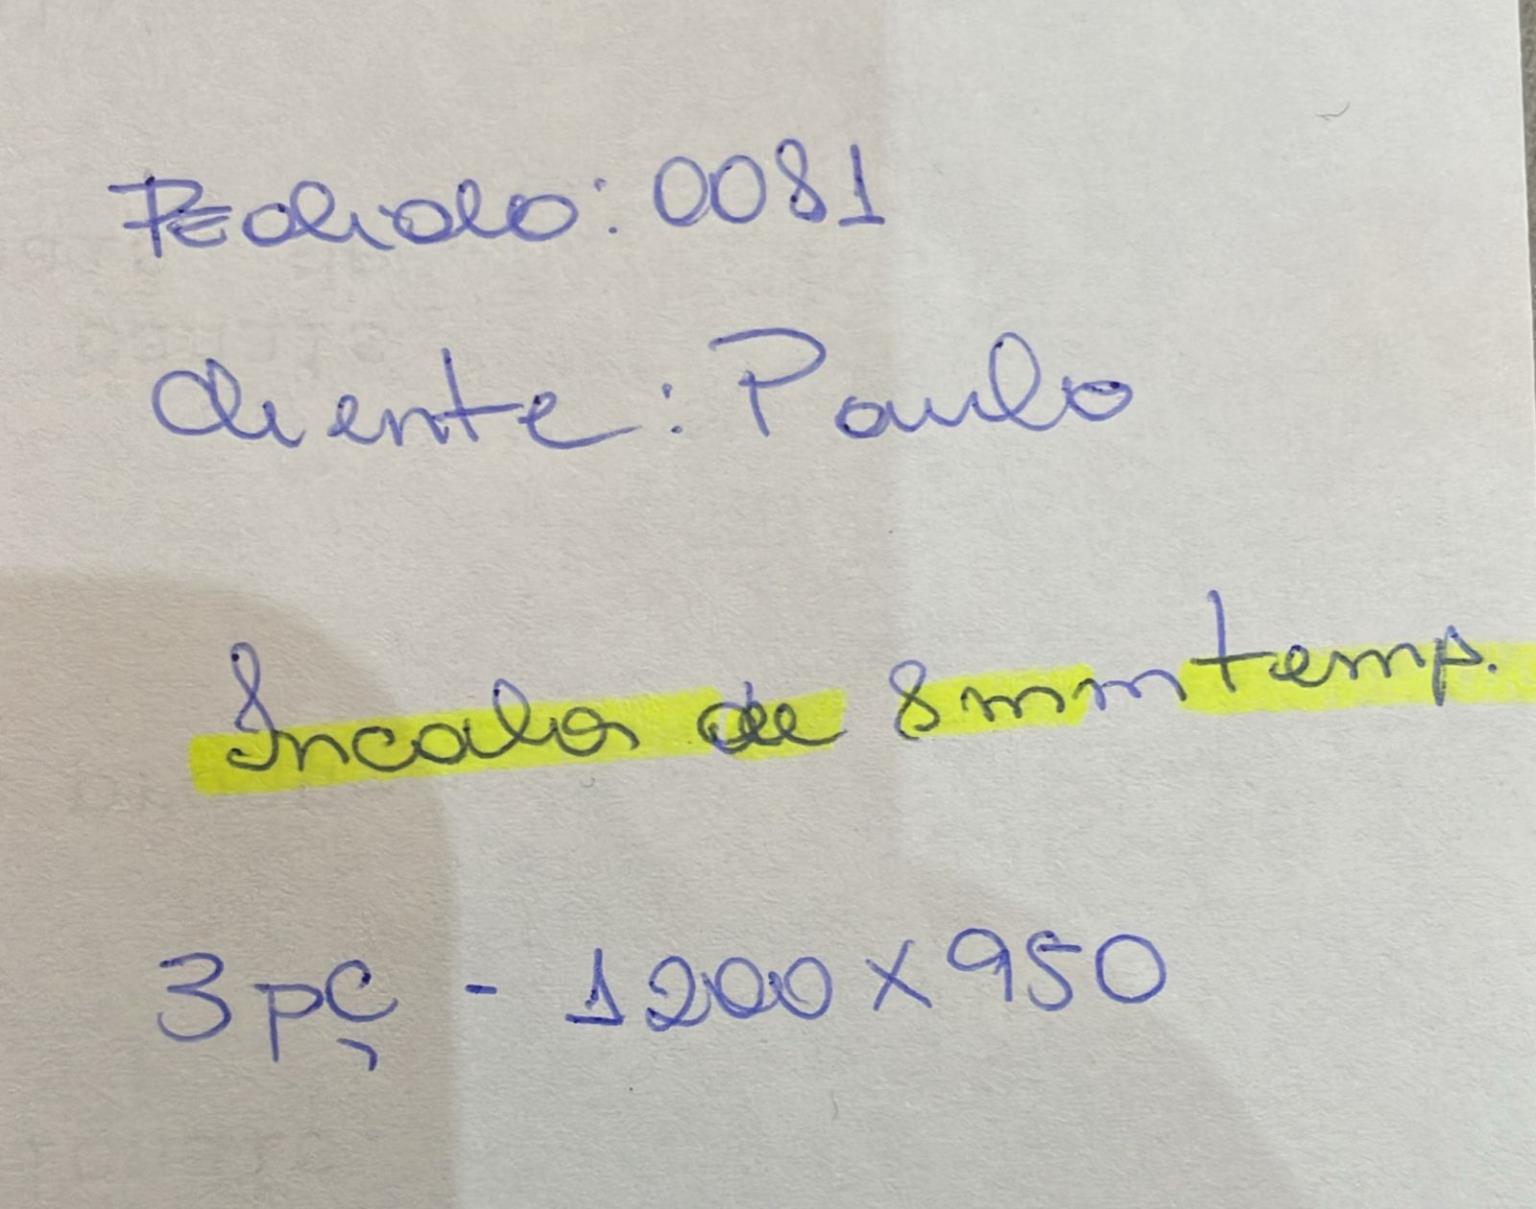 Pedido: 0081
Cliente: Paulo
Incolor de 8mm temp.
3 pç - 1200 x 950